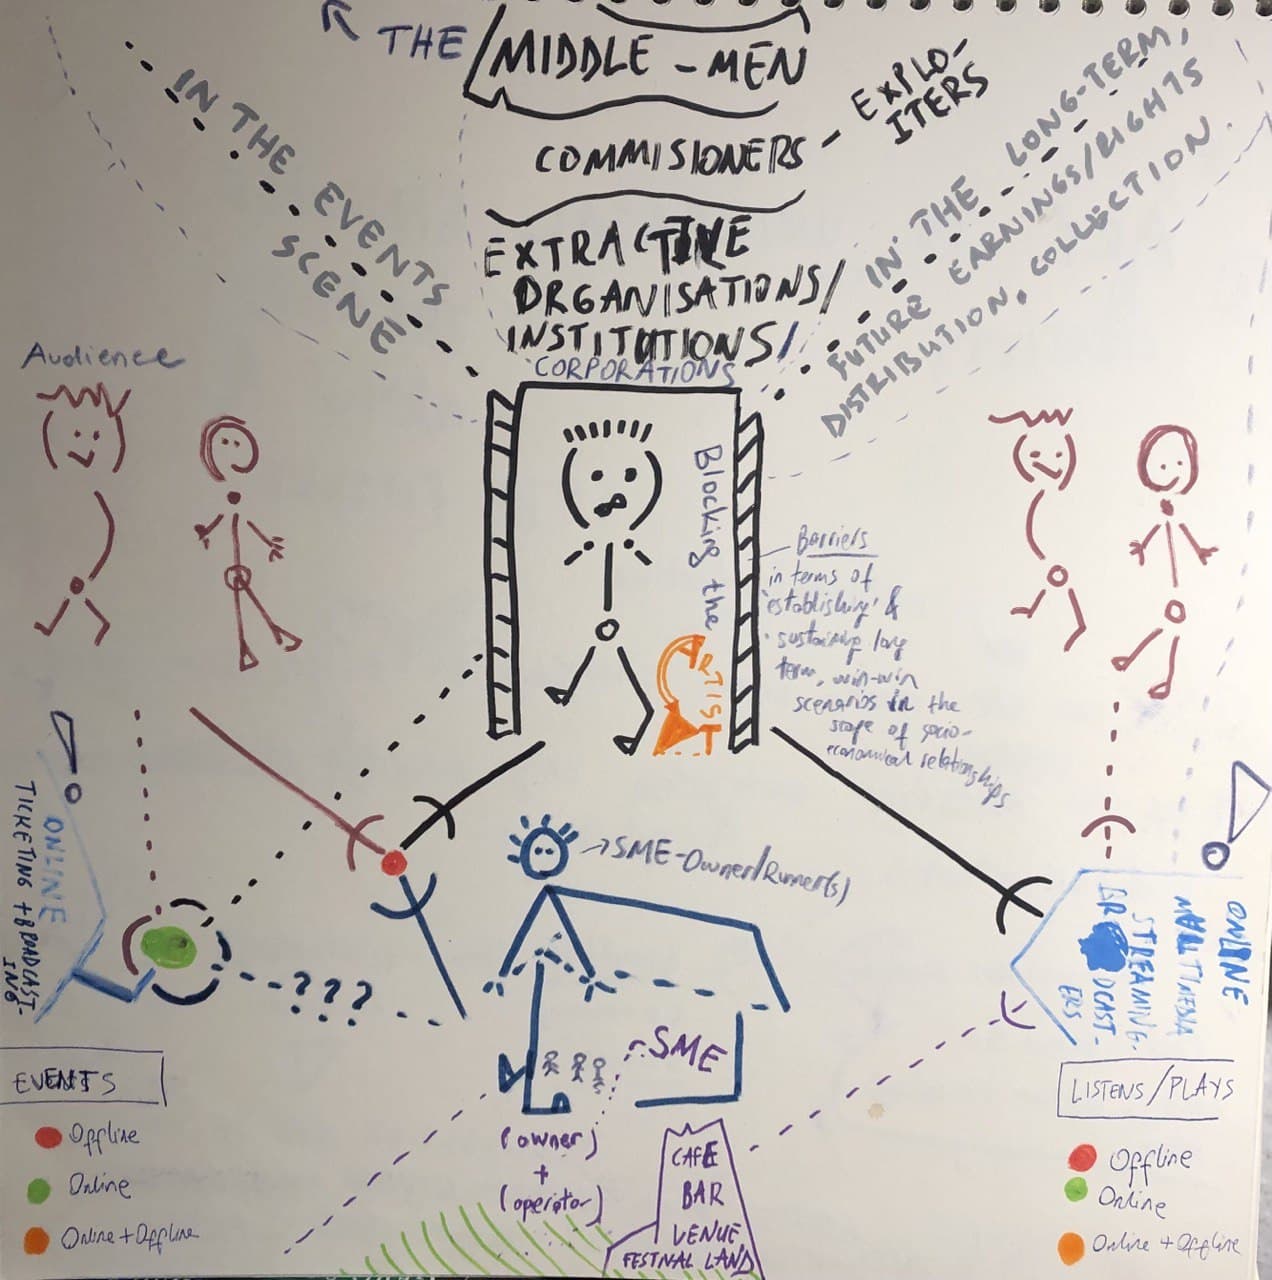 THE / MIDDLE-MEN
COMMISIONERS - EXPLO-
ITERS
EXTRACTIVE
ORGANISATIONS/
INSTITUTIONS/
CORPORATIONS
IN THE EVENTS
SCENE
IN THE LONG-TERM,
FUTURE EARNINGS/RIGHTS
DISTRIBUTION, COLLECTION
Audience
Blocking the
ARTIST
Barriers
in terms of
'establishing' &
sustaining long
term, win-win
scenarios in the
scope of socio-
economical relationships
SME-Owner/Runner(s)
ONLINE
TICKETING + BROADCAST-
ING
???
SME
(owner)
+
(operator)
CAFE
BAR
VENUE,
FESTIVAL LAND
ONLINE
MULTIMEDIA
STREAMING-
BROADCAST-
ERS
EVENTS
Offline
Online
Online + Offline
LISTENS/PLAYS
Offline
Online
Online + Offline